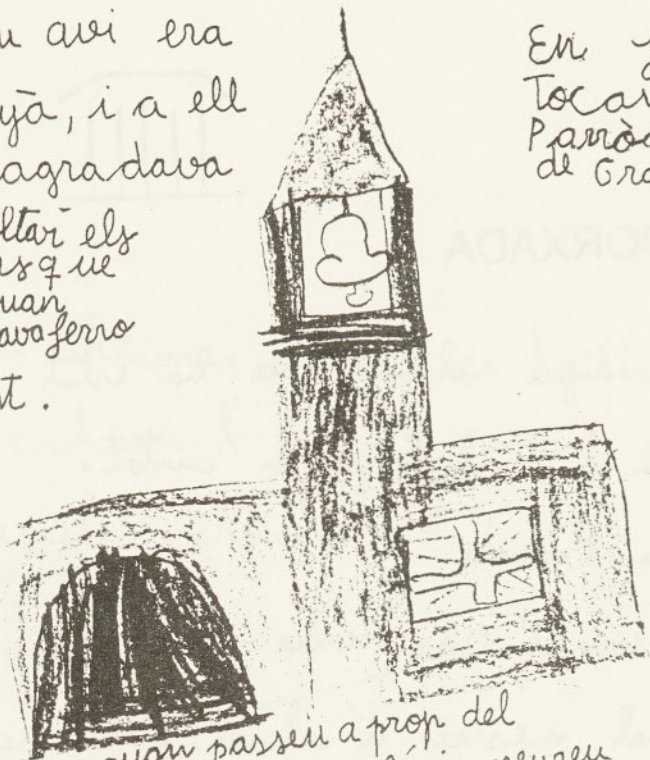 u avi era
yà, i a ell
agradava
ltar els
nsque
uan
ava ferro
t.
En
Tocar
Parrò
de Gra
PORXADA
quan passeu a prop del